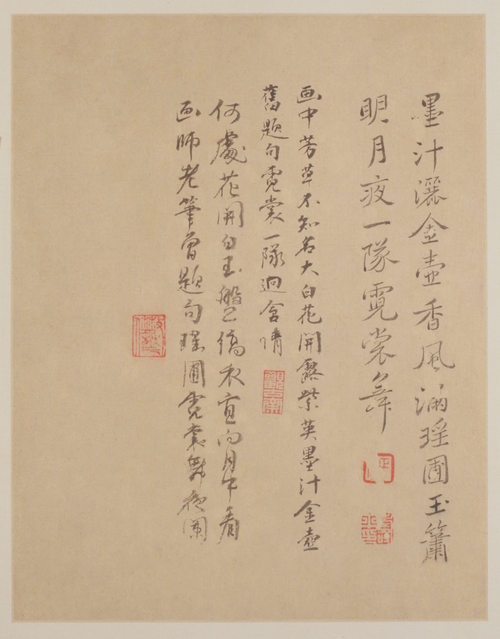 墨汁灑金壺香風滿瑶圃玉簫
眀月夜一隊霓裳舞
画中芳草不知名大白花開露紫英墨汁金壺
舊題句霓裳一隊迥含情
何處花開白玉盤縞衣直向月中看
画師老筆曾題句瑶圃霓裳舞夜闌